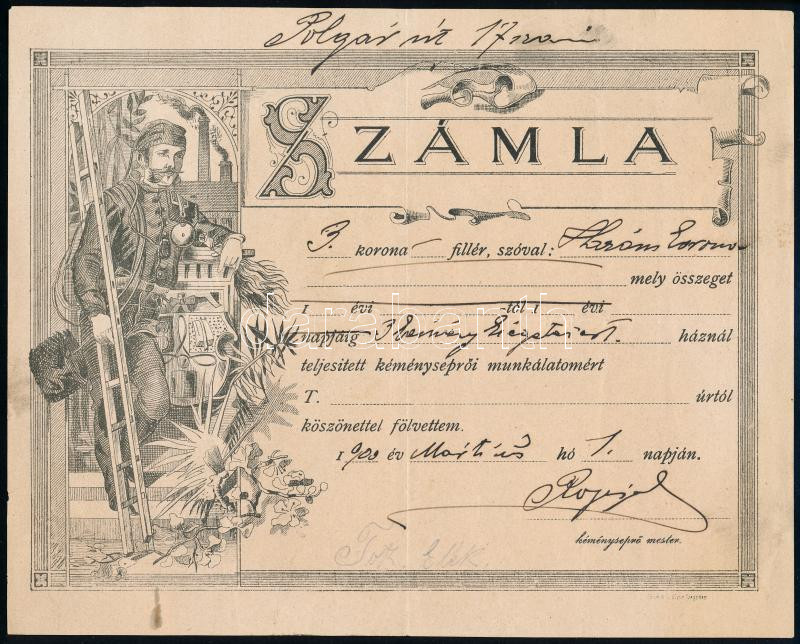 Polgár út 17
SZÁMLA
3. korona — fillér, szóval: Három korona
mely összeget
1 évi -tól 1 évi
napjáig Kémény háznál
teljesitett kéményseprői munkálatomért
T. úrtól
köszönettel fölvettem.
1900 év Martius hó 1. napján.
kéményseprő mester.
darabanth